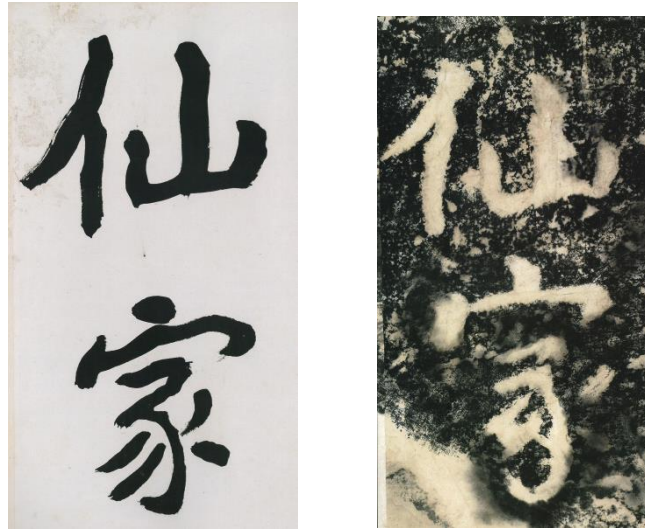 仙家
仙家